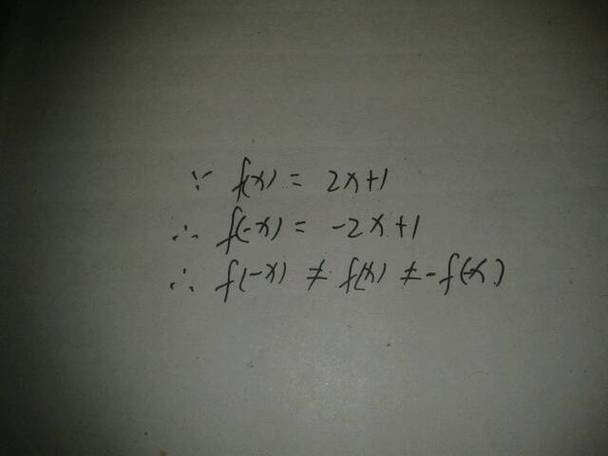 ∵ f(x) = 2x+1
∴ f(-x) = -2x+1
∴ f(-x) ≠ f(x) ≠ -f(-x)